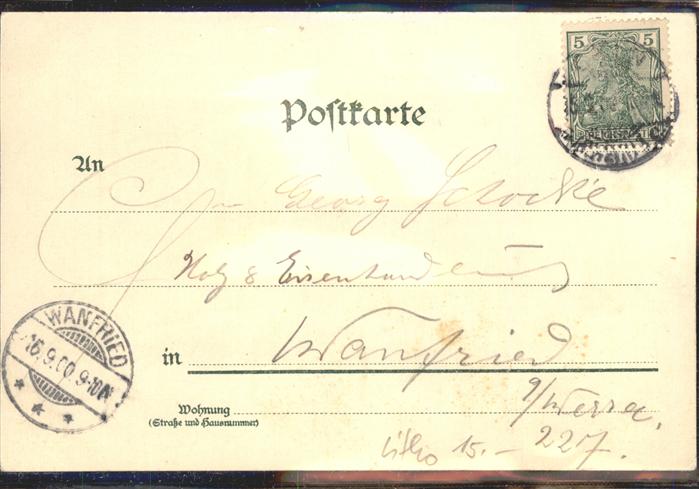 5 5
REICHSPOST
Postkarte
An
Georg Schocke
Holz & Eisenhandlung
WANFRIED
16.9.00.9-10V
in Wanfried
a/Werra.
Wohnung
(Straße und Hausnummer)
Litho 15.- 227.